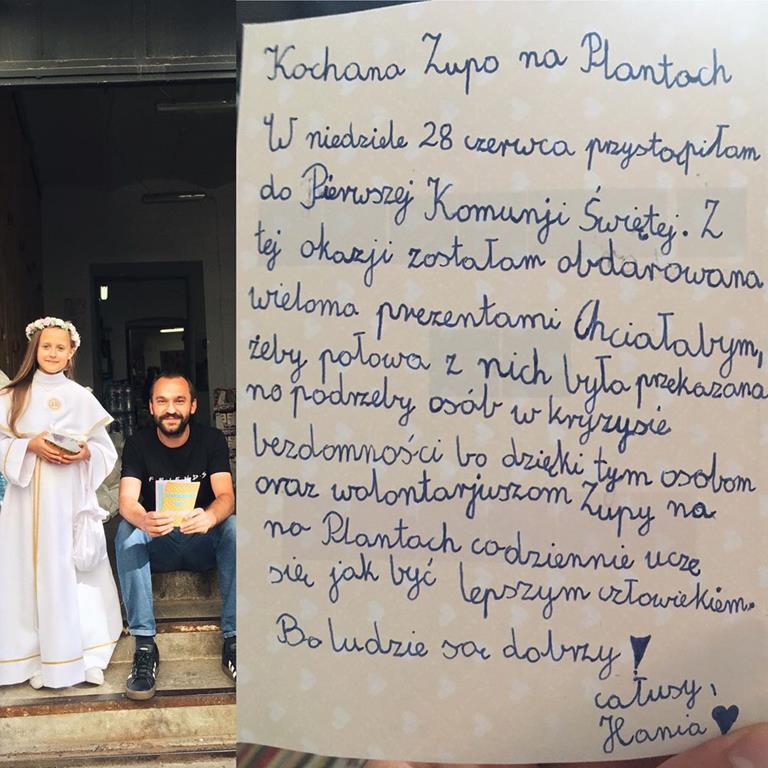 Kochana Zupo na Plantach
W niedziele 28 czerwca przystąpiłam
do Pierwszej Komunji Świętej. Z
tej okazji zostałam obdarowana
wieloma prezentami Chciałabym,
żeby połowa z nich była przekazana
na podrzeby osób w kryzysie
bezdomności bo dzięki tym osobom
oraz wolontarjuszom Zupy na
na Plantach codziennie uczę
się jak być lepszym człowiekiem.
Bo ludzie są dobrzy!
całusy,
Hania ♥
FRIENDS